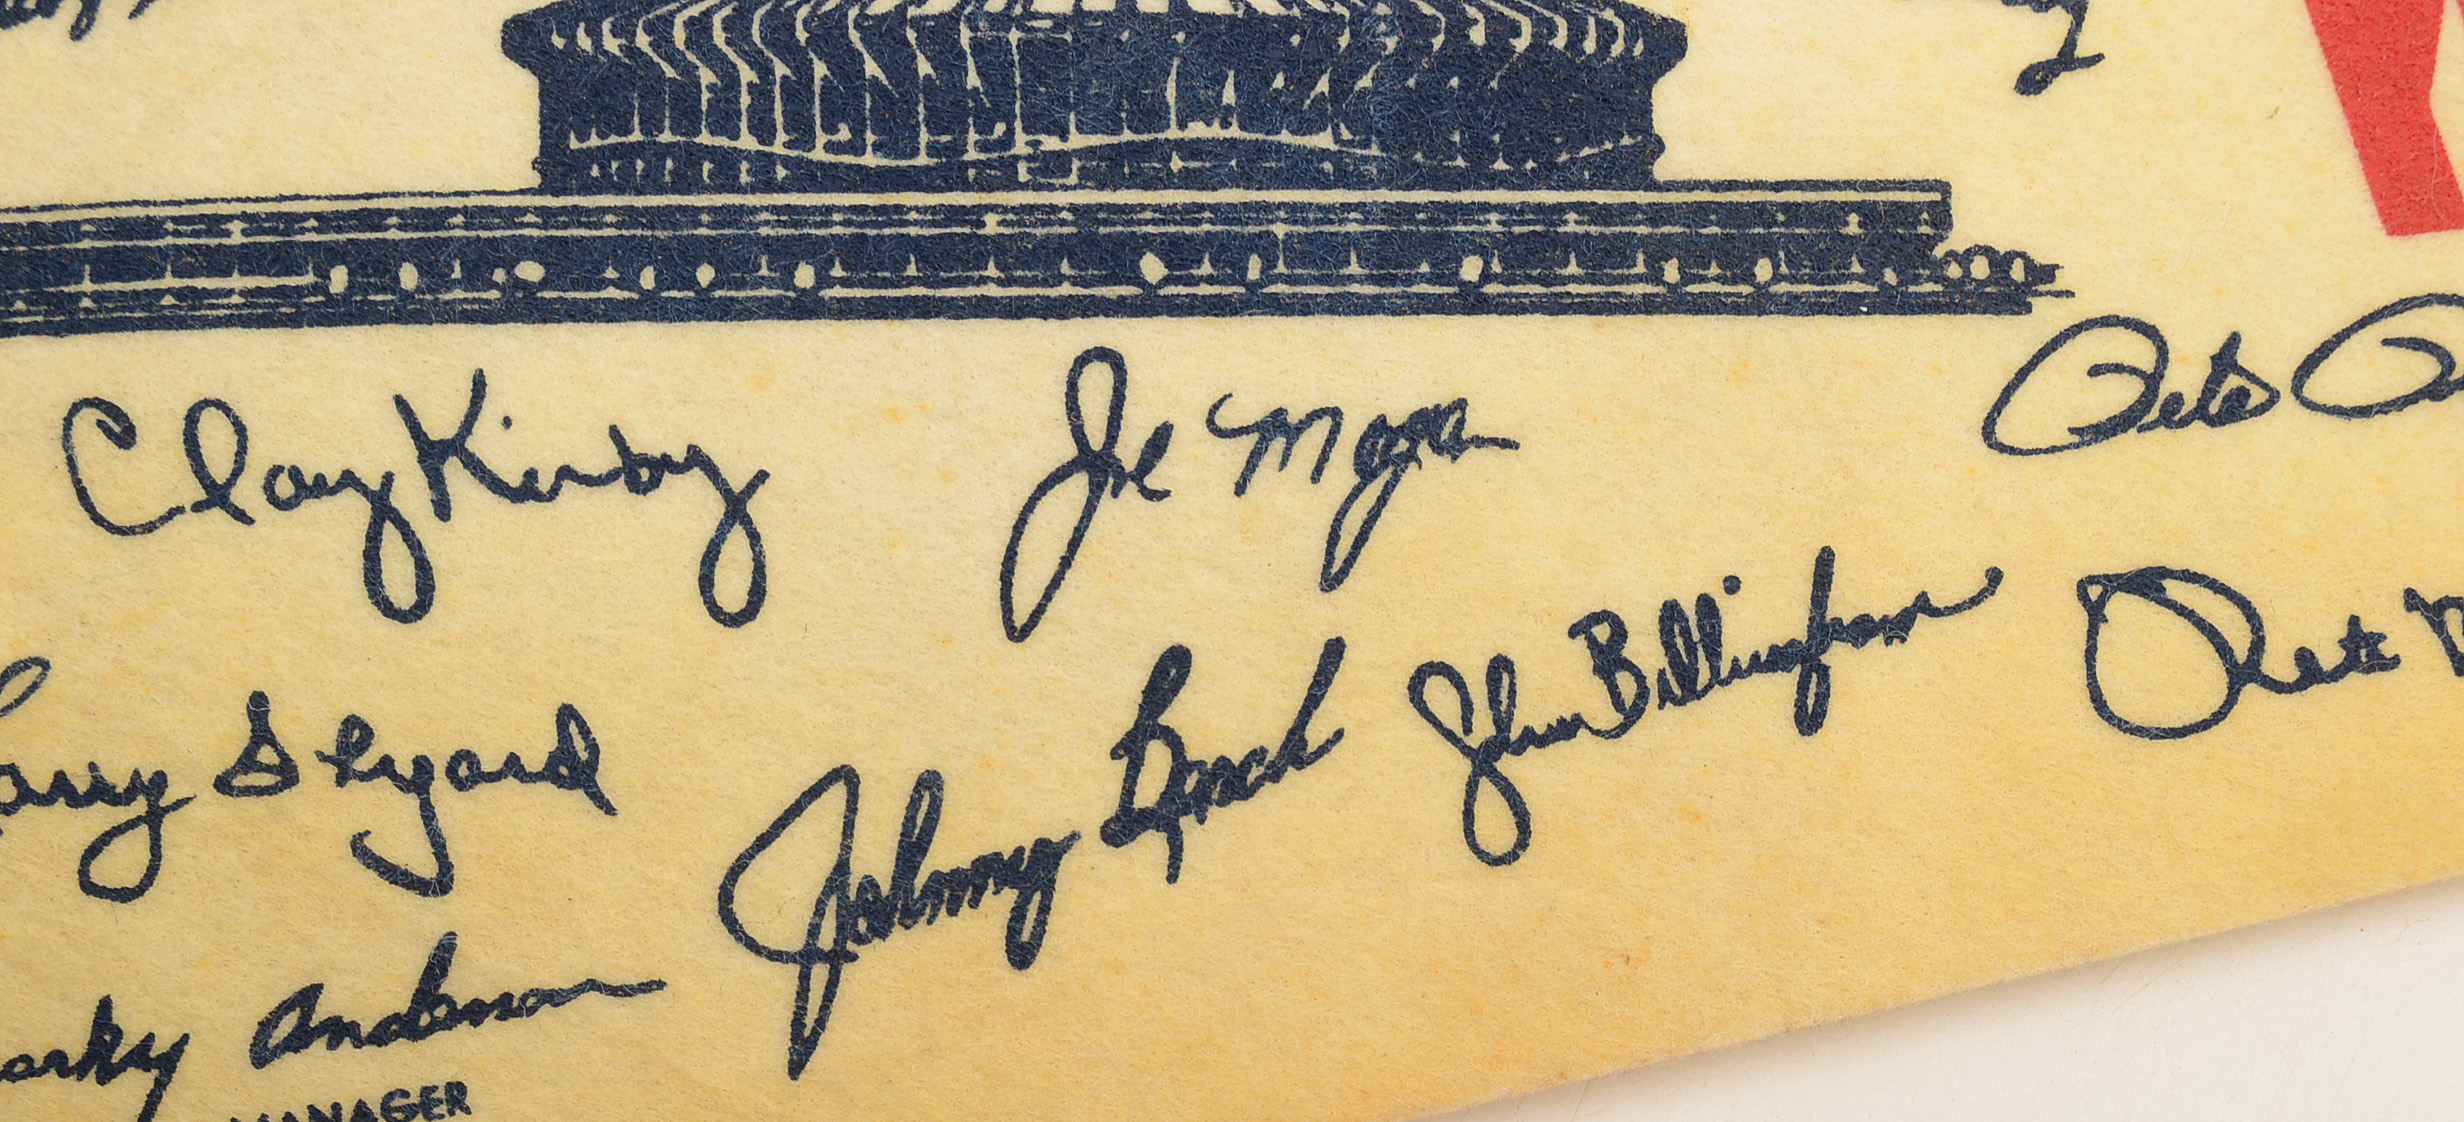 Clay Kirby
Joe Morgan
Pete
Larry Shepard
Johnny Bench
John Billingham
Pete
Sparky Anderson
MANAGER